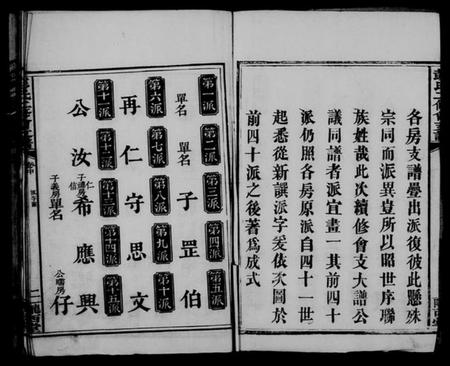 各房支譜譽出派復彼此懸殊
宗同而派異豈所以昭世序聯
族姓哉此次續修會支大譜公
議同譜者派宜畫一其前四十
派仍照各房原派自四十一世
起悉從新譔派字爰依次圖於
前四十派之後著爲成式
第一派 單名
第二派 單名
第三派 子
第四派 罡
第五派 伯
第六派 再
第七派 仁
第八派 守
第九派 思
第十派 文
第十一派 公
汝
第十三派 希
子義房單名
第十四派 應
第十五派 興
公
房
仔